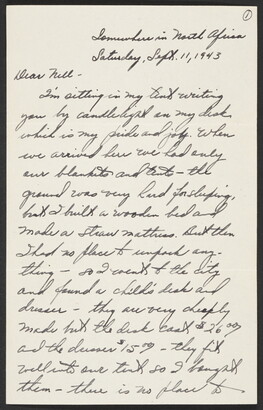 1
Somewhere in North Africa
Saturday, Sept. 11, 1943
Dear Nell-
I'm sitting in my tent writing
you by candlelight on my desk
which is my pride and joy. When
we arrived here we had only
our blankets and tents - the
ground was very hard for sleeping,
but I built a wooden bed and
made a straw mattress. But then
I had no place to unpack any-
thing - so I went to the city
and found a child's desk and
dresser - they are very cheaply
made but the desk cost $26.00
and the dresser $15.00 - they fit
well into our tent so I bought
them - there is no place to